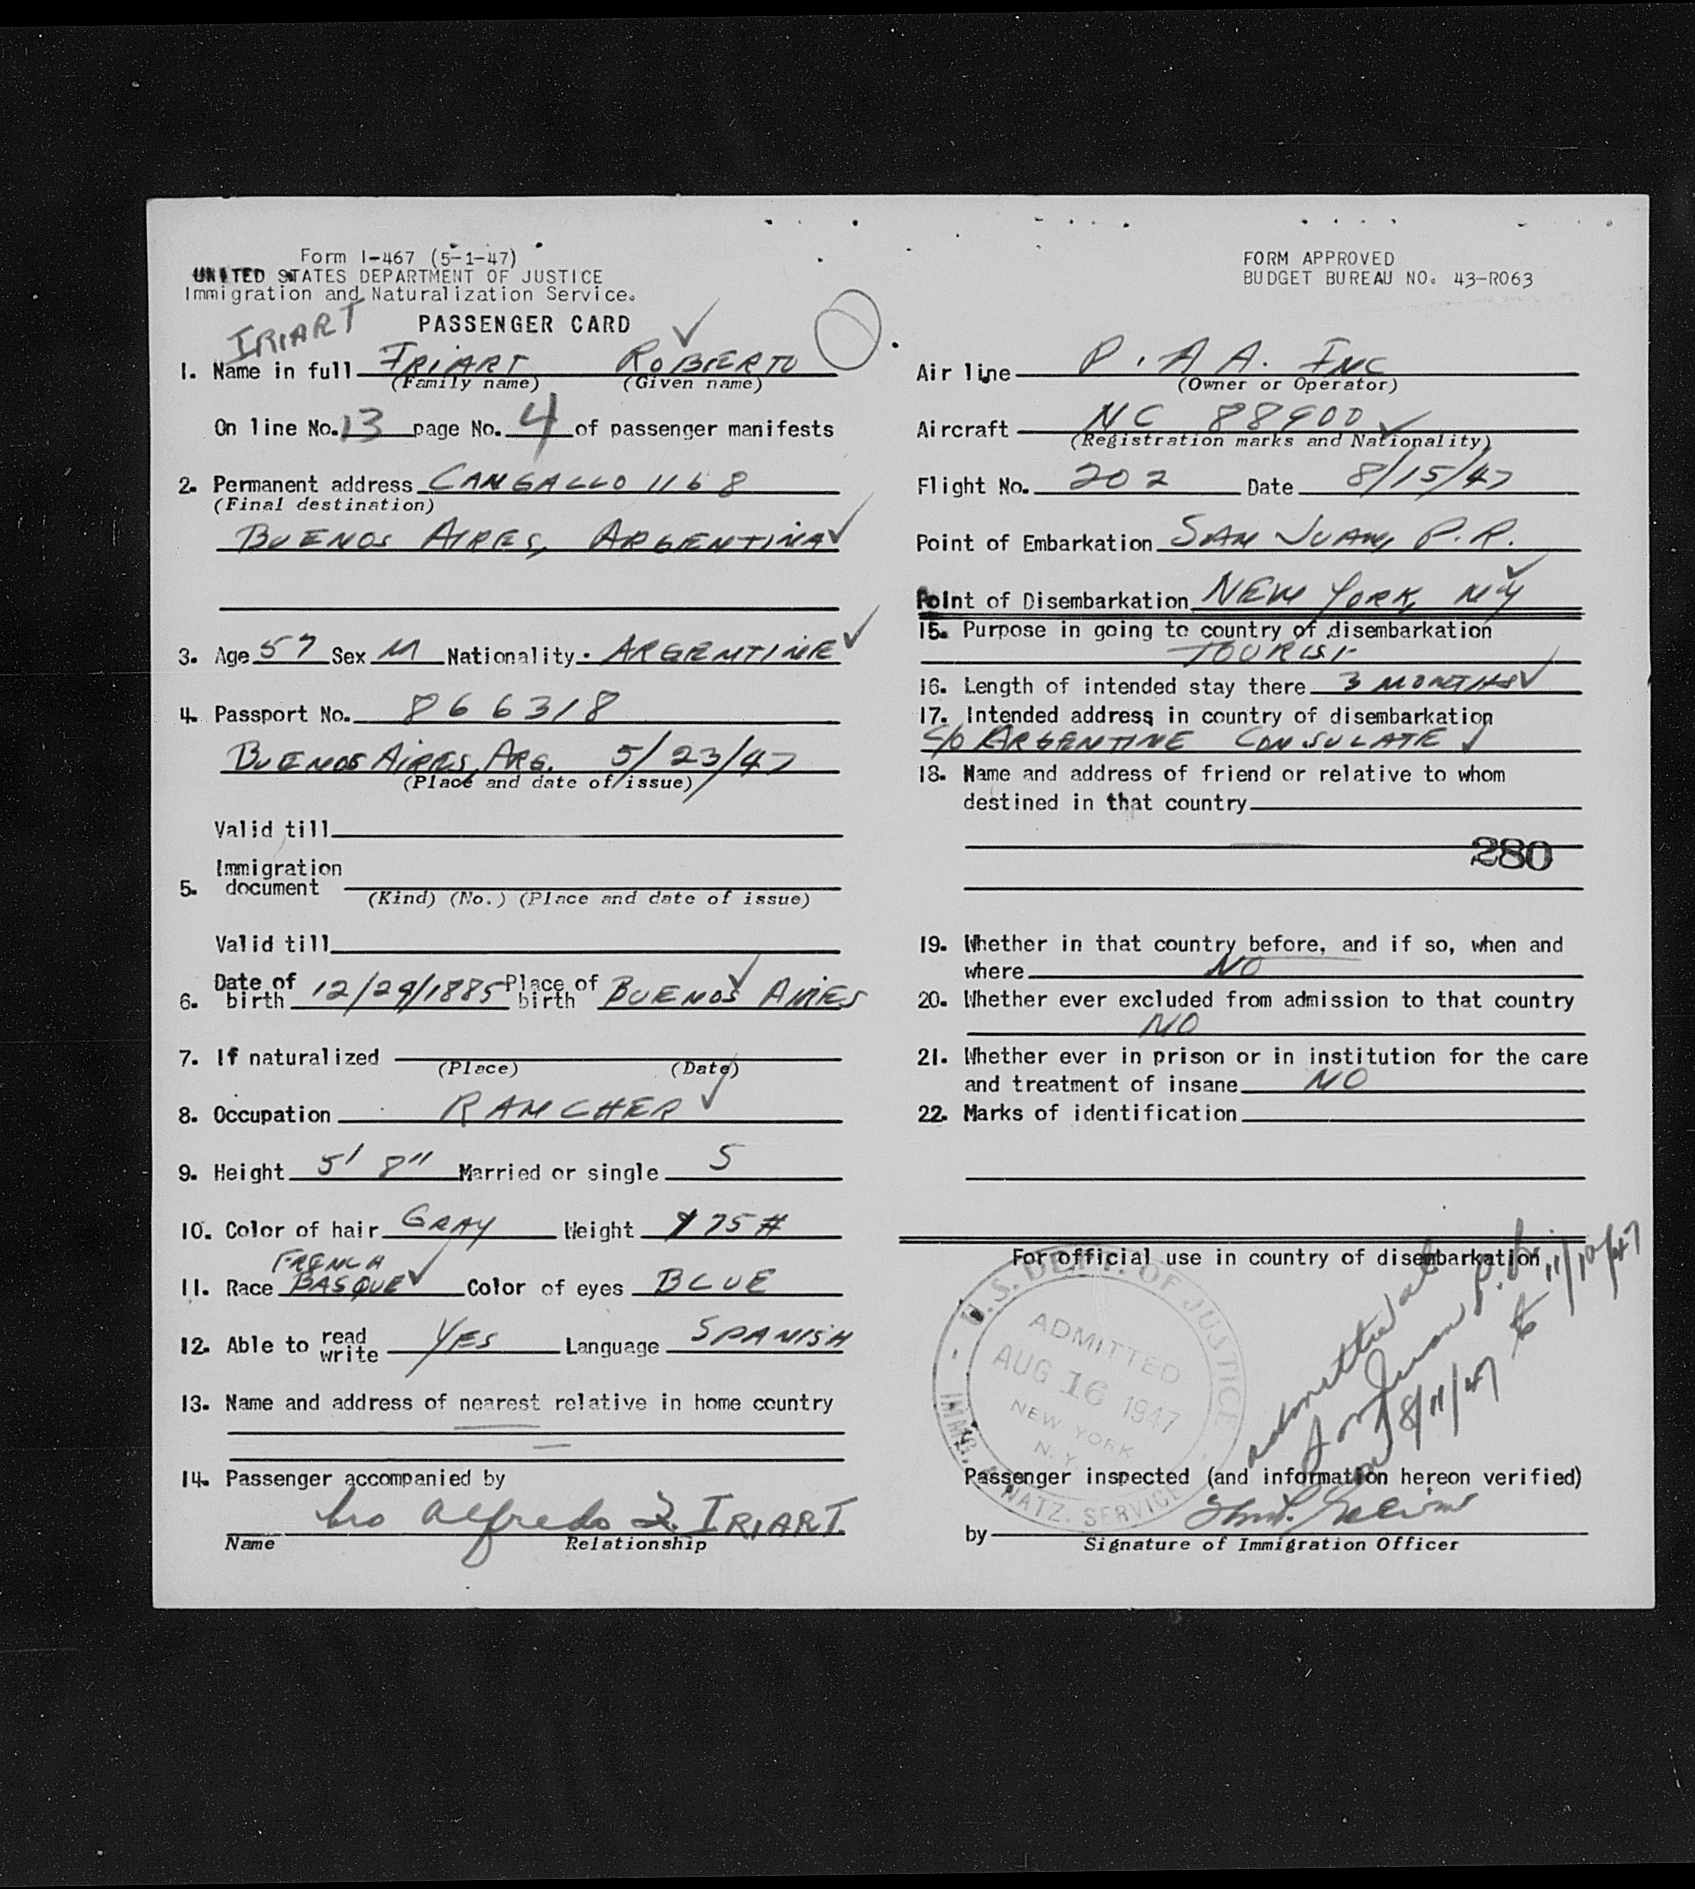 Form I-467 (5-1-47)
UNITED STATES DEPARTMENT OF JUSTICE
Immigration and Naturalization Service.
IRIART
PASSENGER CARD
1. Name in full IRIART ROBERTO
(Family name) (Given name)
On line No. 13 page No. 4 of passenger manifests
2. Permanent address CANGALLO 1168
(Final destination)
BUENOS AIRES, ARGENTINA
3. Age 57 Sex M Nationality. ARGENTINE
4. Passport No. 866318
BUENOS AIRES, ARG. 5/23/47
(Place and date of issue)
Valid till
Immigration
5. document
(Kind) (No.) (Place and date of issue)
Valid till
6. Date of birth 12/29/1885 Place of birth BUENOS AIRES
7. If naturalized
(Place) (Date)
8. Occupation RANCHER
9. Height 5' 8" Married or single S
10. Color of hair GRAY Weight 175#
FRENCH
11. Race BASQUE Color of eyes BLUE
12. Able to read write YES Language SPANISH
13. Name and address of nearest relative in home country
14. Passenger accompanied by
bro Alfredo I. IRIART.
Name Relationship
FORM APPROVED
BUDGET BUREAU NO. 43-R063
Air line P.A A. INC
(Owner or Operator)
Aircraft NC 88900
(Registration marks and Nationality)
Flight No. 202 Date 8/15/47
Point of Embarkation SAN JUAN, P.R.
Point of Disembarkation NEW YORK, NY
15. Purpose in going to country of disembarkation
TOURIST
16. Length of intended stay there 3 MONTHS
17. Intended address in country of disembarkation
C/O ARGENTINE CONSULATE
18. Name and address of friend or relative to whom
destined in that country
280
19. Whether in that country before, and if so, when and
where NO
20. Whether ever excluded from admission to that country
NO
21. Whether ever in prison or in institution for the care
and treatment of insane NO
22. Marks of identification
For official use in country of disembarkation
U.S. DEPT. OF JUSTICE
ADMITTED
AUG 16 1947
NEW YORK
N.Y.
IMMG. & NATZ. SERVICE
admitted at
San Juan P.R.
on 8/11/47 to 11/10/47
Passenger inspected (and information hereon verified)
by
Signature of Immigration Officer